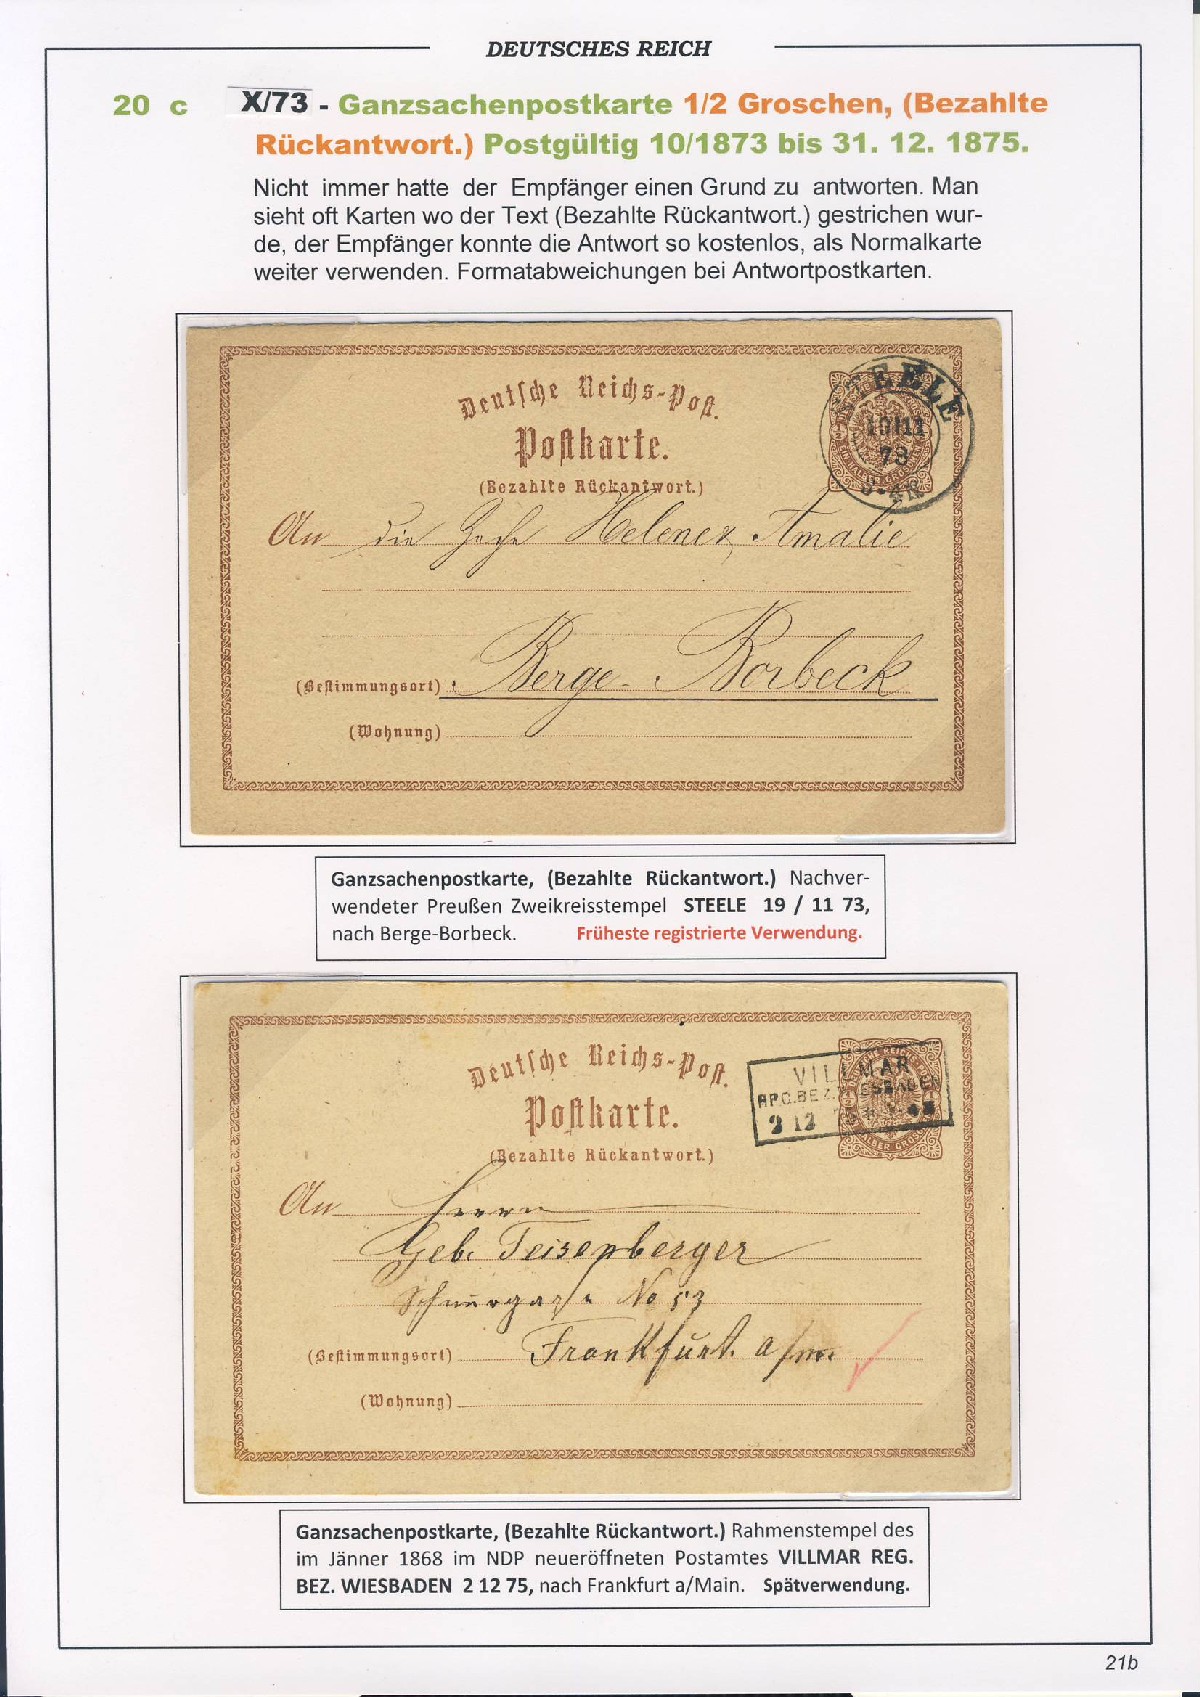 DEUTSCHES REICH
20 c X/73 - Ganzsachenpostkarte 1/2 Groschen, (Bezahlte
Rückantwort.) Postgültig 10/1873 bis 31. 12. 1875.
Nicht immer hatte der Empfänger einen Grund zu antworten. Man
sieht oft Karten wo der Text (Bezahlte Rückantwort.) gestrichen wur-
de, der Empfänger konnte die Antwort so kostenlos, als Normalkarte
weiter verwenden. Formatabweichungen bei Antwortpostkarten.
Deutsche Reichs-Post.
STEELE
73
Postkarte.
(Bezahlte Rückantwort.)
An die Zeche Helene & Amalie
Berge-Borbeck
(Bestimmungsort)
(Wohnung)
Ganzsachenpostkarte, (Bezahlte Rückantwort.) Nachver-
wendeter Preußen Zweikreisstempel STEELE 19 / 11 73,
nach Berge-Borbeck. Früheste registrierte Verwendung.
Deutsche Reichs-Post.
VILLMAR
REG.BEZ. WIESBADEN
2 12
Postkarte.
(Bezahlte Rückantwort.)
An Herrn
Geb. Teisenberger
Schnurgasse No 53
(Bestimmungsort) Frankfurt a/m.
(Wohnung)
Ganzsachenpostkarte, (Bezahlte Rückantwort.) Rahmenstempel des
im Jänner 1868 im NDP neueröffneten Postamtes VILLMAR REG.
BEZ. WIESBADEN 2 12 75, nach Frankfurt a/Main. Spätverwendung.
21b